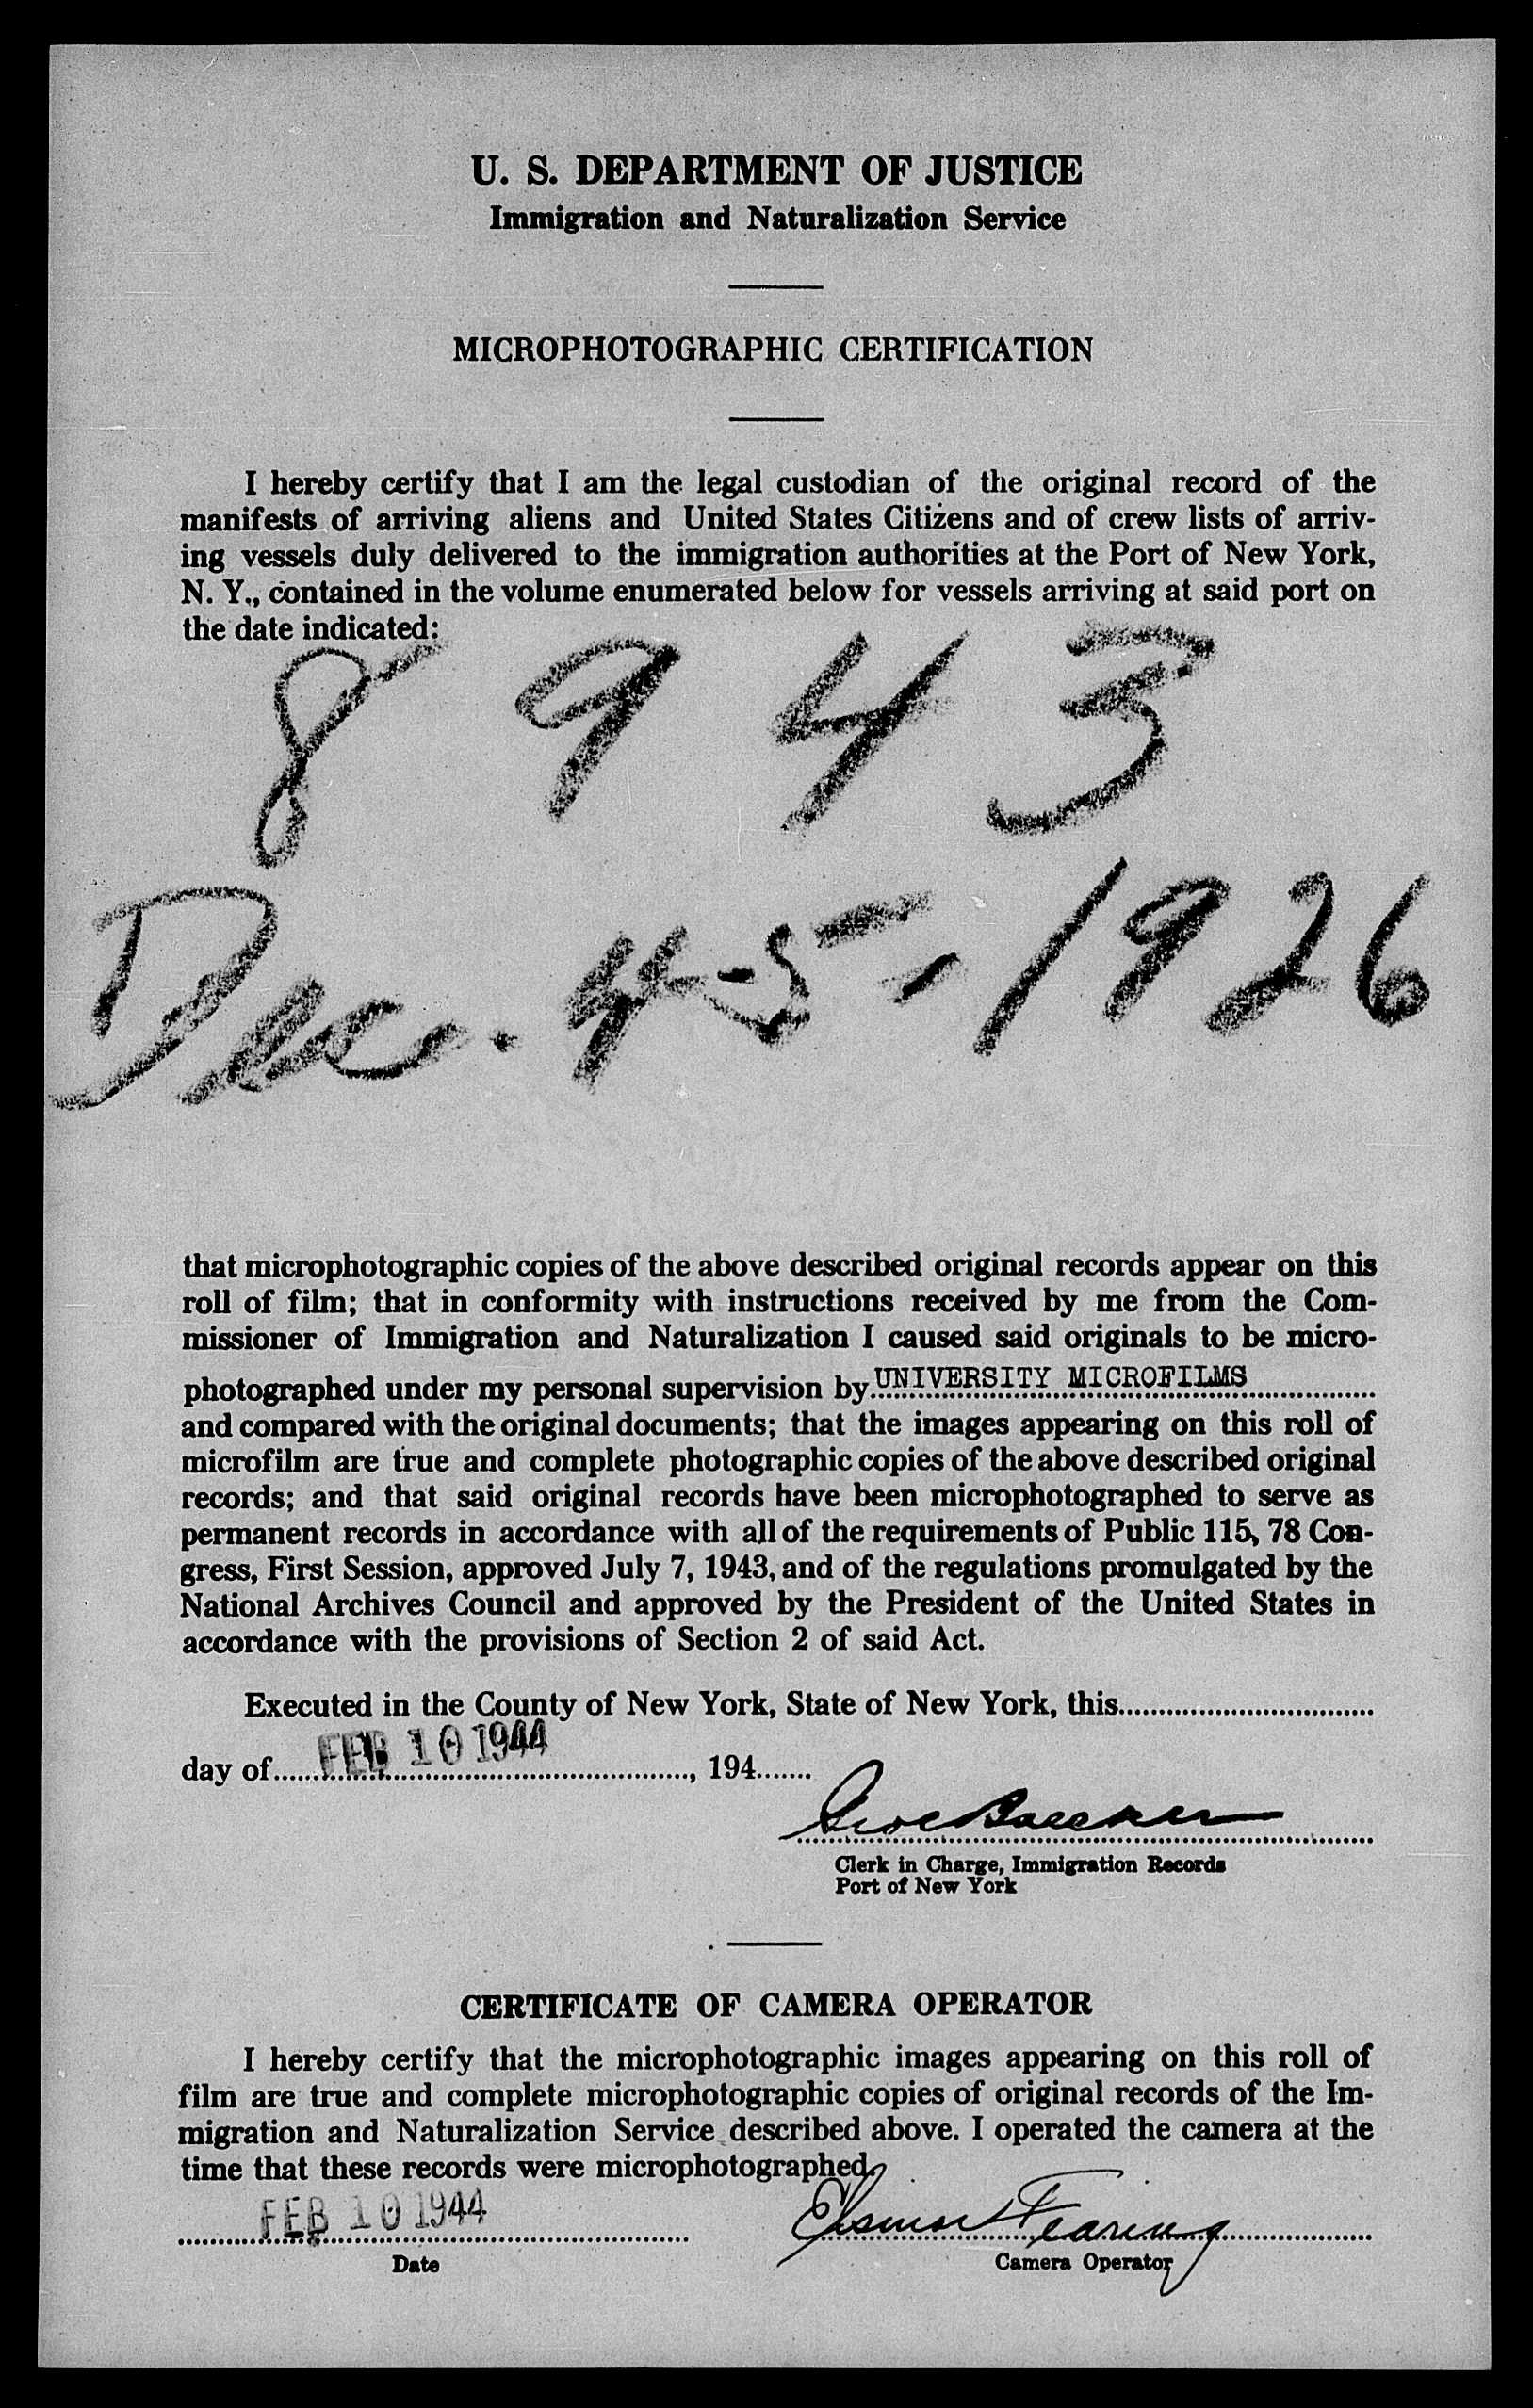 U. S. DEPARTMENT OF JUSTICE
Immigration and Naturalization Service
MICROPHOTOGRAPHIC CERTIFICATION
I hereby certify that I am the legal custodian of the original record of the
manifests of arriving aliens and United States Citizens and of crew lists of arriv-
ing vessels duly delivered to the immigration authorities at the Port of New York,
N. Y., contained in the volume enumerated below for vessels arriving at said port on
the date indicated:
8 9 4 3
Dec. 4-5-1926
that microphotographic copies of the above described original records appear on this
roll of film; that in conformity with instructions received by me from the Com-
missioner of Immigration and Naturalization I caused said originals to be micro-
photographed under my personal supervision by UNIVERSITY MICROFILMS
and compared with the original documents; that the images appearing on this roll of
microfilm are true and complete photographic copies of the above described original
records; and that said original records have been microphotographed to serve as
permanent records in accordance with all of the requirements of Public 115, 78 Con-
gress, First Session, approved July 7, 1943, and of the regulations promulgated by the
National Archives Council and approved by the President of the United States in
accordance with the provisions of Section 2 of said Act.
Executed in the County of New York, State of New York, this
day of FEB 10 1944, 194
Clerk in Charge, Immigration Records
Port of New York
CERTIFICATE OF CAMERA OPERATOR
I hereby certify that the microphotographic images appearing on this roll of
film are true and complete microphotographic copies of original records of the Im-
migration and Naturalization Service described above. I operated the camera at the
time that these records were microphotographed.
FEB 10 1944 Fearing
Date Camera Operator